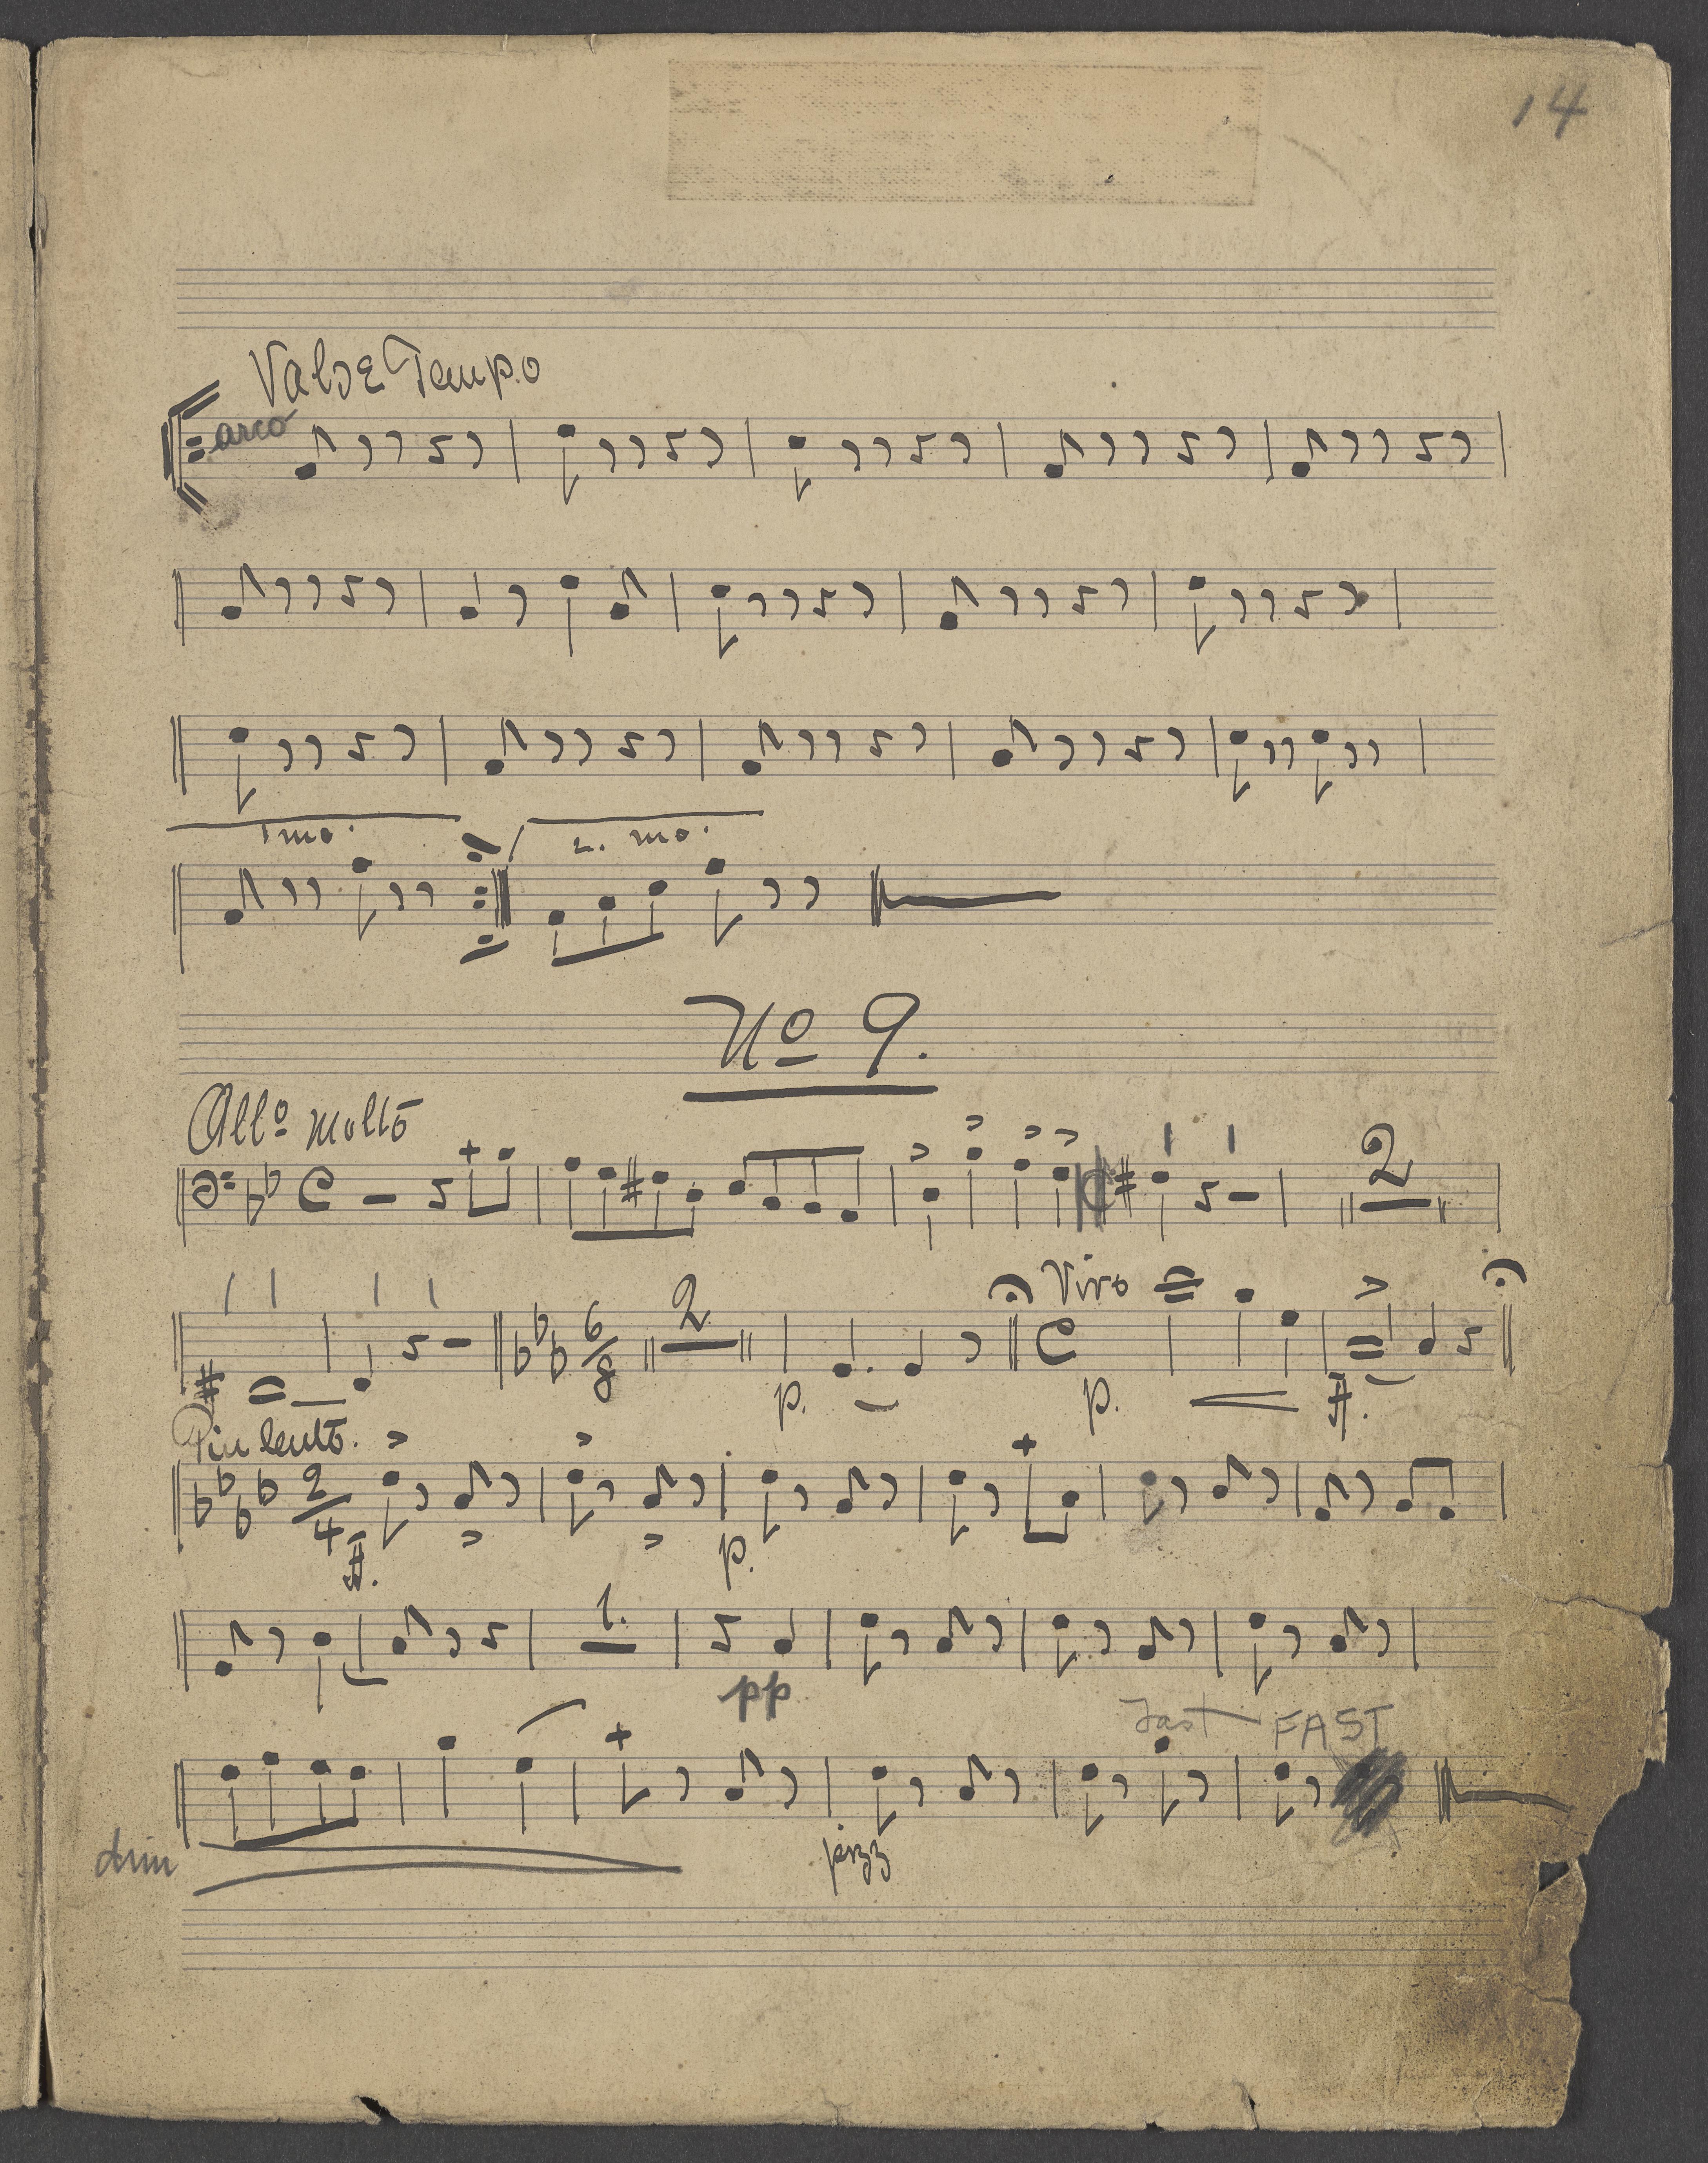 14
Valse Tempo
arco
1mo. 2. mo.
No 9.
Allo molto
2
6/8 2 Vivo
p. p. ff.
Piu lento.
2/4
ff. p.
1.
pp
Fast FAST
dim pizz